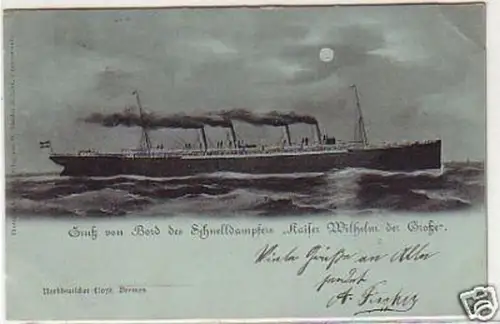 Gruß von Bord des Schnelldampfers "Kaiser Wilhelm der Große".
Viele Grüße an Alle
sendet
A. Fischer
Norddeutscher Lloyd Bremen